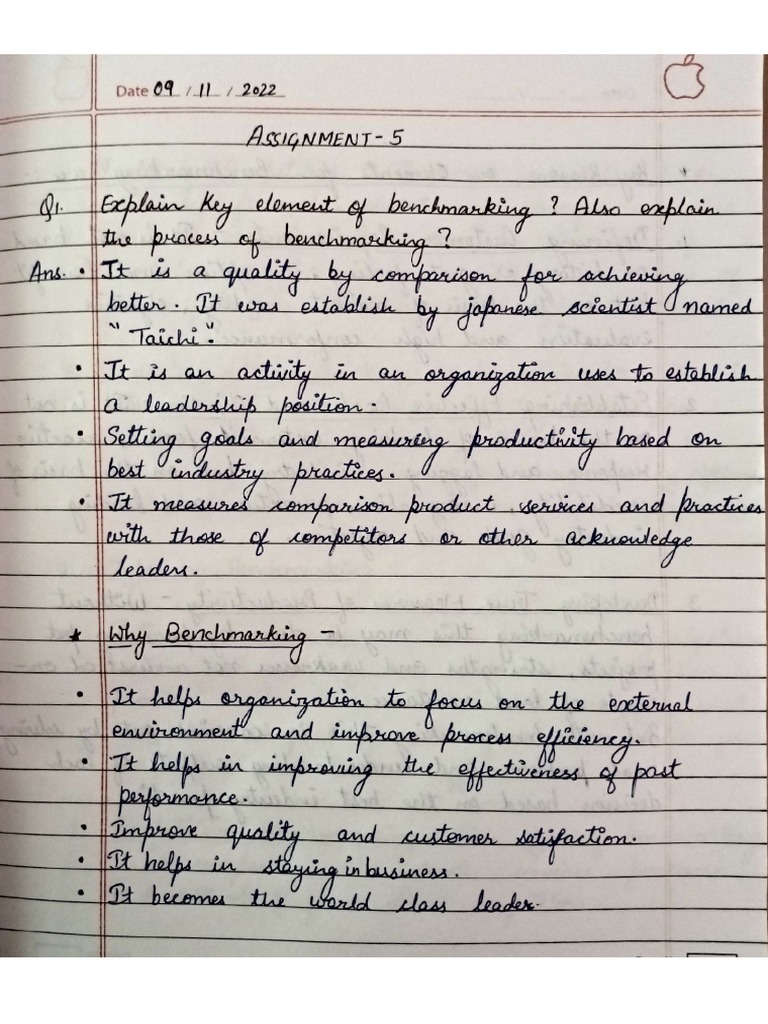 Date 09 / 11 / 2022
ASSIGNMENT-5
Q1. Explain key element of benchmarking ? Also explain
the process of benchmarking ?
Ans. • It is a quality by comparison for achieving
better. It was establish by japanese scientist named
"Taichi".
• It is an activity in an organization uses to establish
a leadership position.
• Setting goals and measuring productivity based on
best industry practices.
• It measures comparison product services and practices
with those of competitors or other acknowledge
leaders.
* Why Benchmarking -
• It helps organization to focus on the external
environment and improve process efficiency.
• It helps in improving the effectiveness of past
performance.
• Improve quality and customer satisfaction.
• It helps in staying in business.
• It becomes the world class leader.